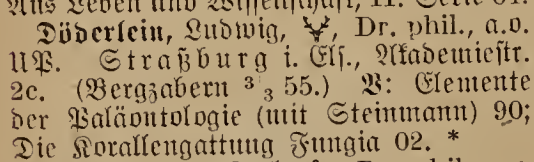 Aus Leben und Wissenschaft, II. Serie 01.
Döderlein, Ludwig, Dr. phil., a.o.
UP. Straßburg i. Els., Akademiestr.
2c. (Bergzabern 3/3 55.) V: Elemente
der Paläontologie (mit Steinmann) 90;
Die Korallengattung Fungia 02. *